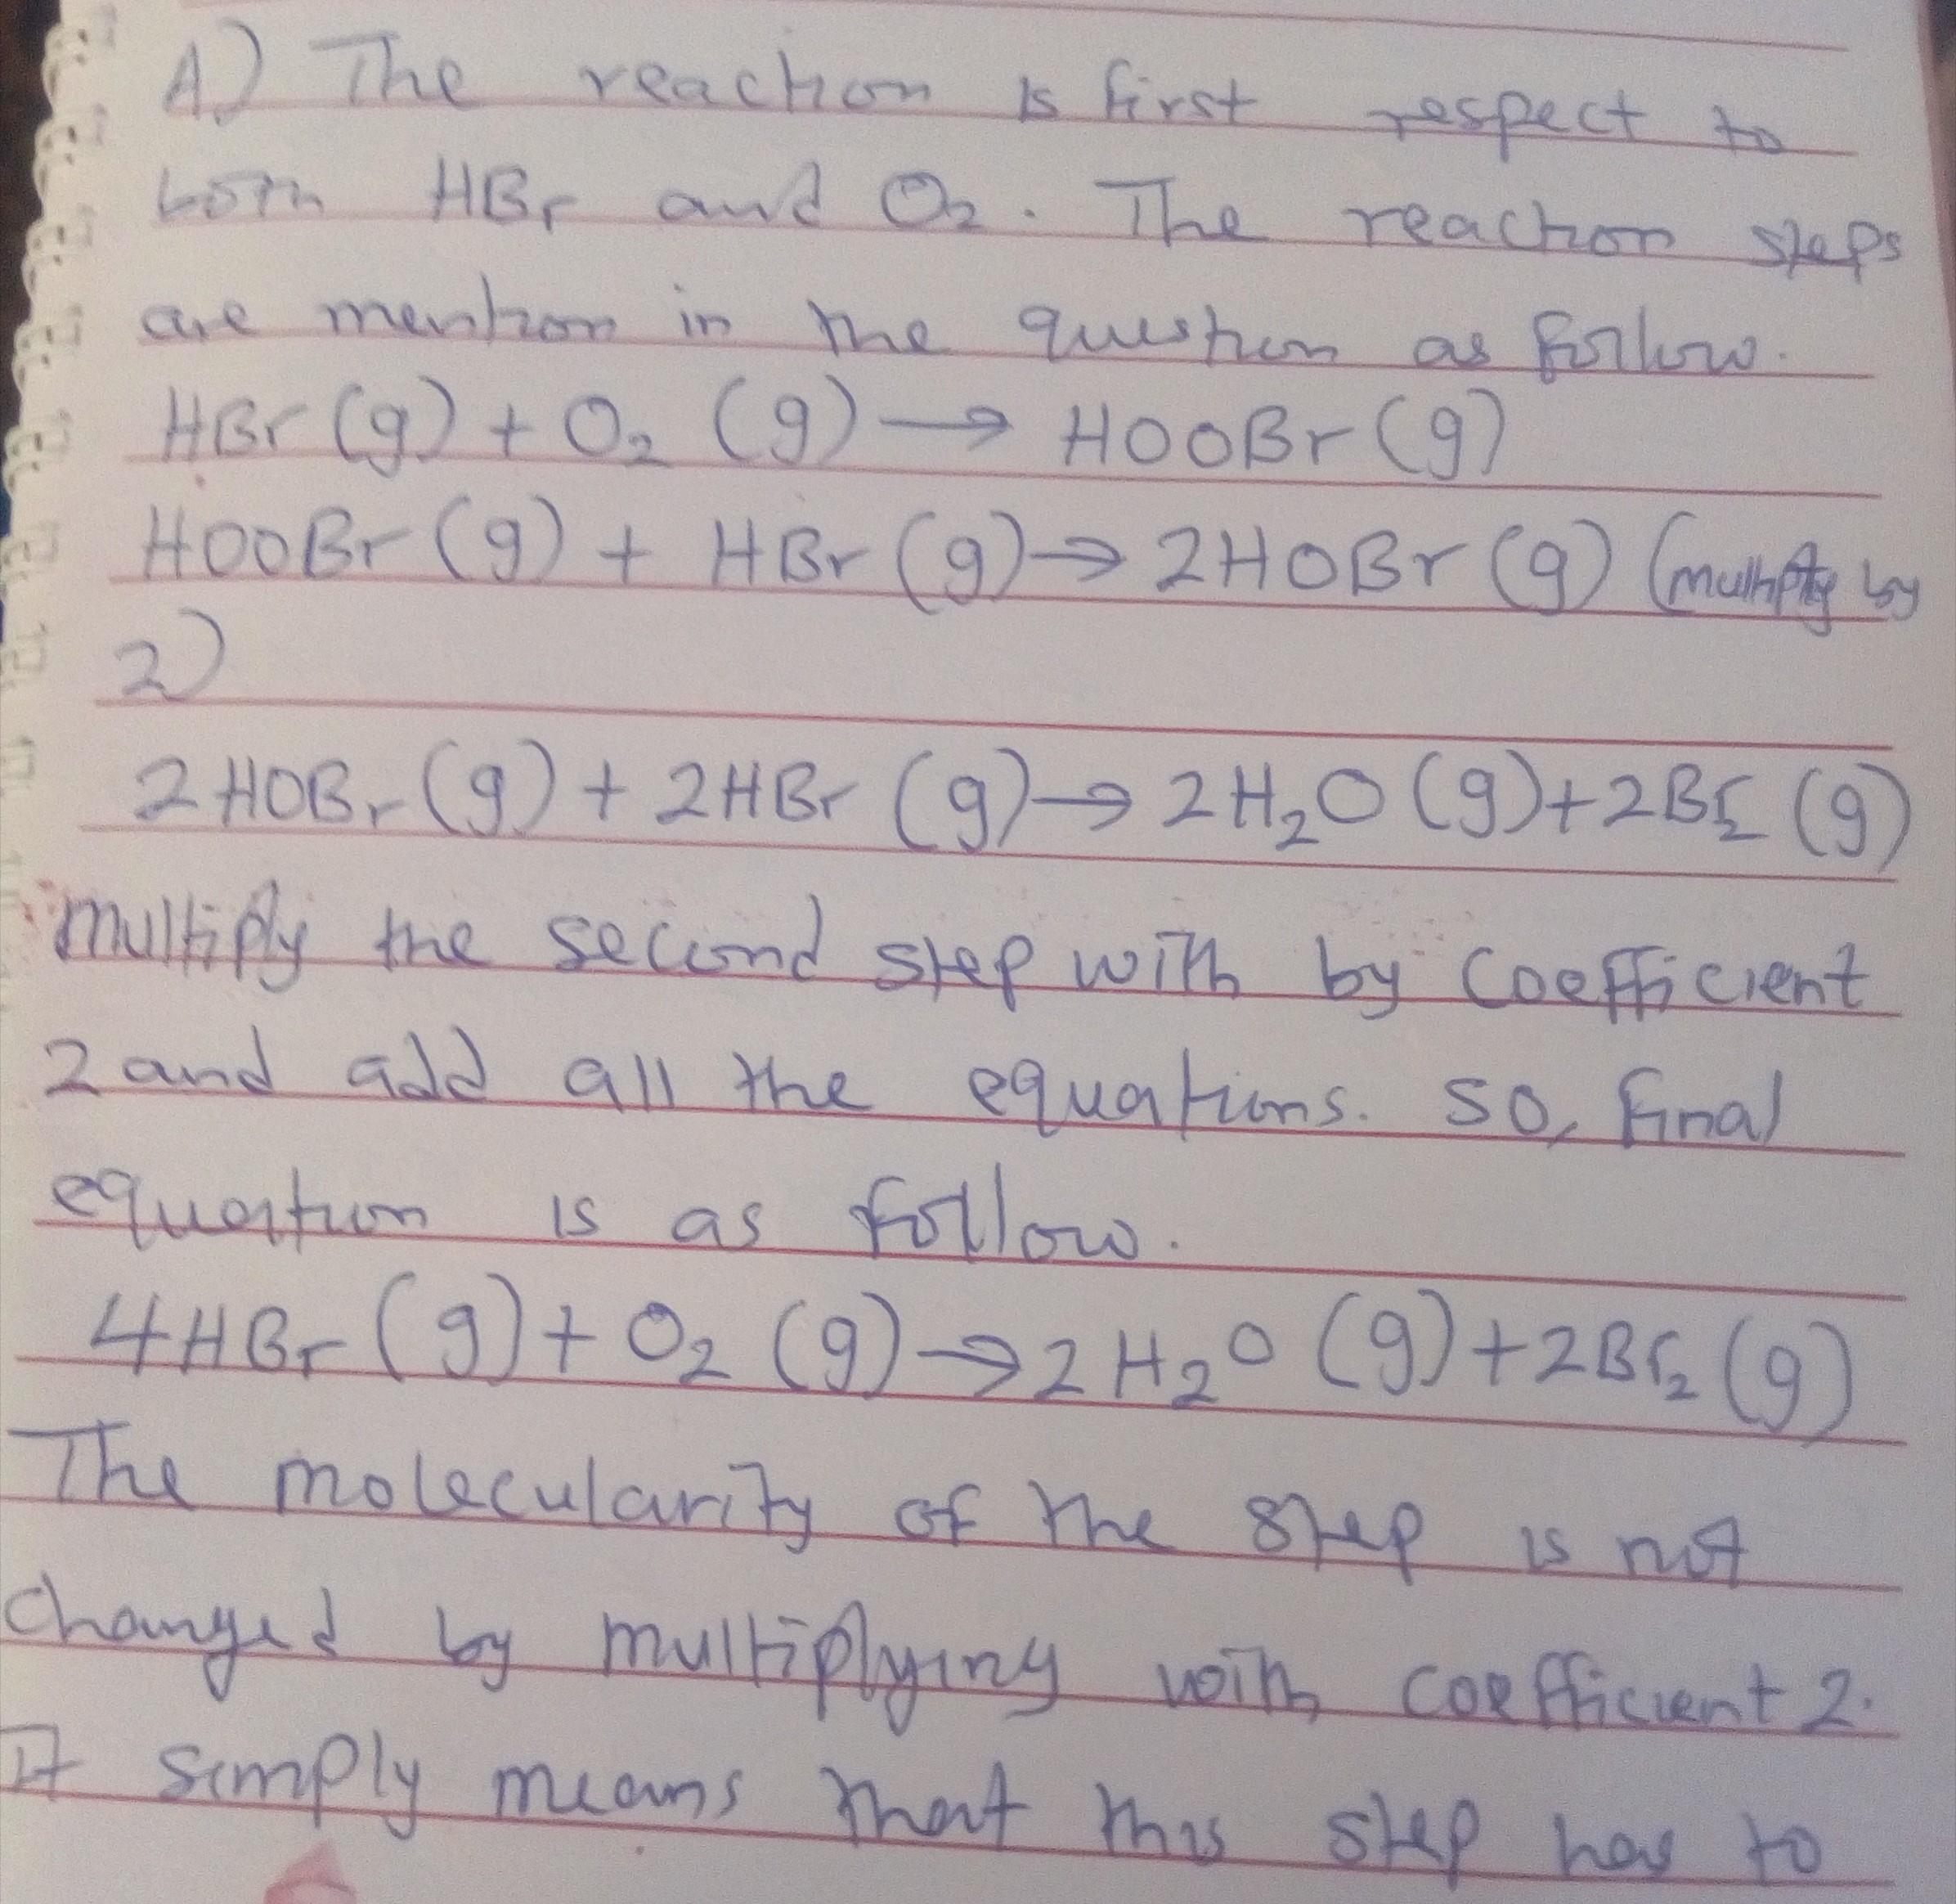 A) The reaction is first respect to
both HBr and O2. The reaction steps
are mention in the question as follow.
HBr (g) + O2 (g) → HOOBr (g)
HOOBr (g) + HBr (g) → 2HOBr (g) (multiply by
2)
2HOBr (g) + 2HBr (g) → 2H2O (g) + 2Br2 (g)
multiply the second step with by coefficient
2 and add all the equations. So, final
equation is as follow.
4HBr (g) + O2 (g) → 2H2O (g) + 2Br2 (g)
The molecularity of the step is not
changed by multiplying with coefficient 2.
It simply means that this step has to